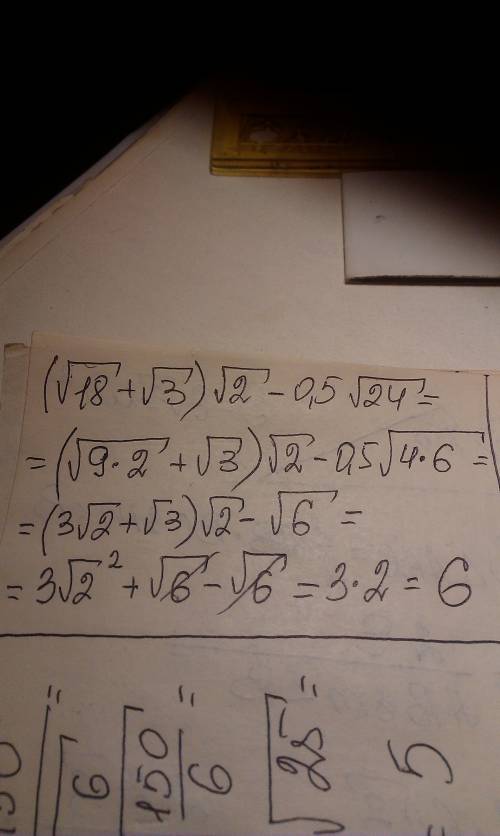 (√18 + √3)√2 - 0,5√24 =
= (√9·2 + √3)√2 - 0,5√4·6 =
= (3√2 + √3)√2 - √6 =
= 3√2² + √6 - √6 = 3·2 = 6
√150/6 =
√25 =
= 5